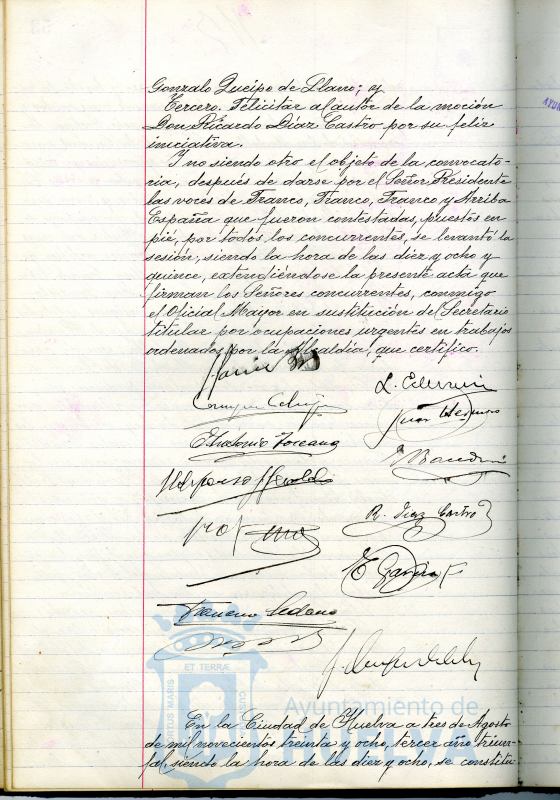 Gonzalo Queipo de Llano; y
Tercero. Felicitar al autor de la moción
Don Ricardo Díaz Castro por su feliz
iniciativa.
Y no siendo otro el objeto de la convocato-
ria, después de darse por el Señor Presidente
las voces de Franco, Franco, Franco y Arriba
España que fueron contestadas, puestos en
pié, por todos los concurrentes, se levantó la
sesión, siendo la hora de las diez y ocho y
quince, extendiéndose la presente acta que
firman los Señores concurrentes, conmigo
el Oficial Mayor en sustitución del Secretario
titular por ocupaciones urgentes en trabajos
ordenados por la Alcaldía, que certifico.
R. Diaz Castro
ET TERRÆ
PORTUS MARIS
CUSTODIA
Ayuntamiento de
HUELVA
En la Ciudad de Huelva a tres de Agosto
de mil novecientos treinta y ocho, tercer año triun-
fal, siendo la hora de las diez y ocho, se constitu-